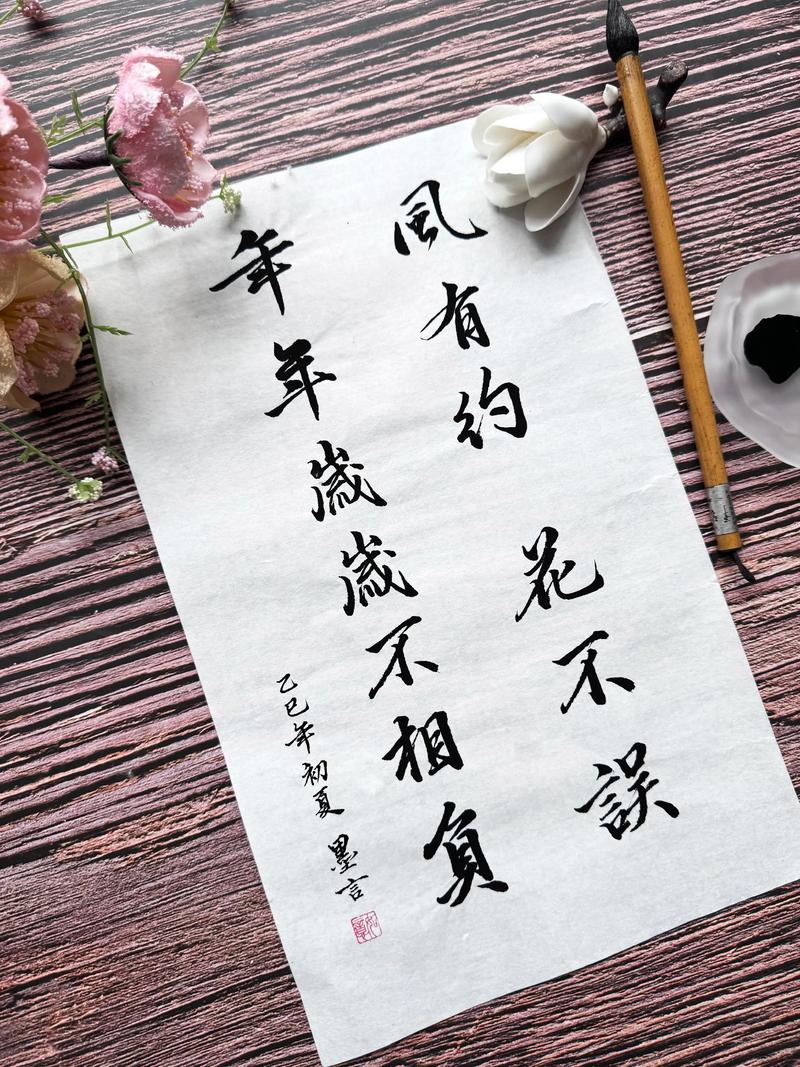 風有約 花不誤
年年歲歲不相負
乙巳年初夏 墨言